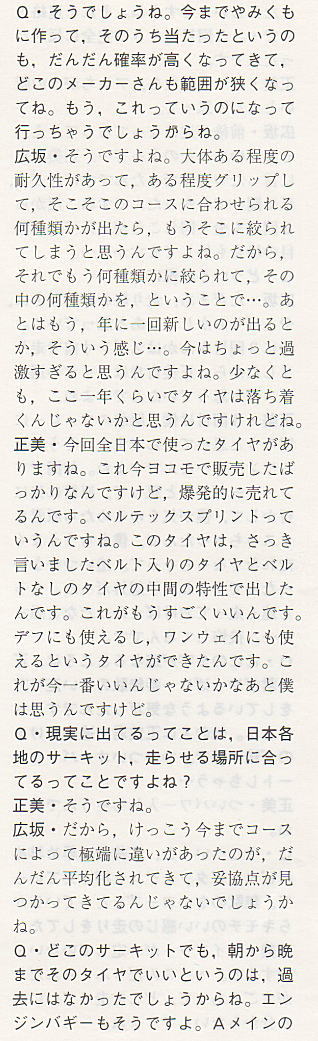 Q・そうでしょうね。今までやみくも
に作って，そのうち当たったというの
も，だんだん確率が高くなってきて，
どこのメーカーさんも範囲が狭くなっ
てね。もう，これっていうのになって
行っちゃうでしょうからね。
広坂・そうですよね。大体ある程度の
耐久性があって，ある程度グリップし
て，そこそこのコースに合わせられる
何種類かが出たら，もうそこに絞られ
てしまうと思うんですよね。だから，
それでもう何種類かに絞られて，その
中の何種類かを，ということで…。あ
とはもう，年に一回新しいのが出ると
か，そういう感じ…。今はちょっと過
激すぎると思うんですよね。少なくと
も，ここ一年くらいでタイヤは落ち着
くんじゃないかと思うんですけれどね。
正美・今回全日本で使ったタイヤがあ
りますね。これ今ヨコモで販売したば
っかりなんですけど，爆発的に売れて
るんです。ベルテックスプリントって
いうんですね。このタイヤは，さっき
言いましたベルト入りのタイヤとベル
トなしのタイヤの中間の特性で出した
んです。これがもうすごくいいんです。
デフにも使えるし，ワンウェイにも使
えるというタイヤができたんです。こ
れが今一番いいんじゃないかなあと僕
は思うんですけど。
Q・現実に出てるってことは，日本各
地のサーキット，走らせる場所に合っ
てるってことですよね？
正美・そうですね。
広坂・だから，けっこう今までコース
によって極端に違いがあったのが，だ
んだん平均化されてきて，妥協点が見
つかってきてるんじゃないでしょうか
ね。
Q・どこのサーキットでも，朝から晩
までそのタイヤでいいというのは，過
去にはなかったでしょうからね。エン
ジンバギーもそうですよ。Aメインの